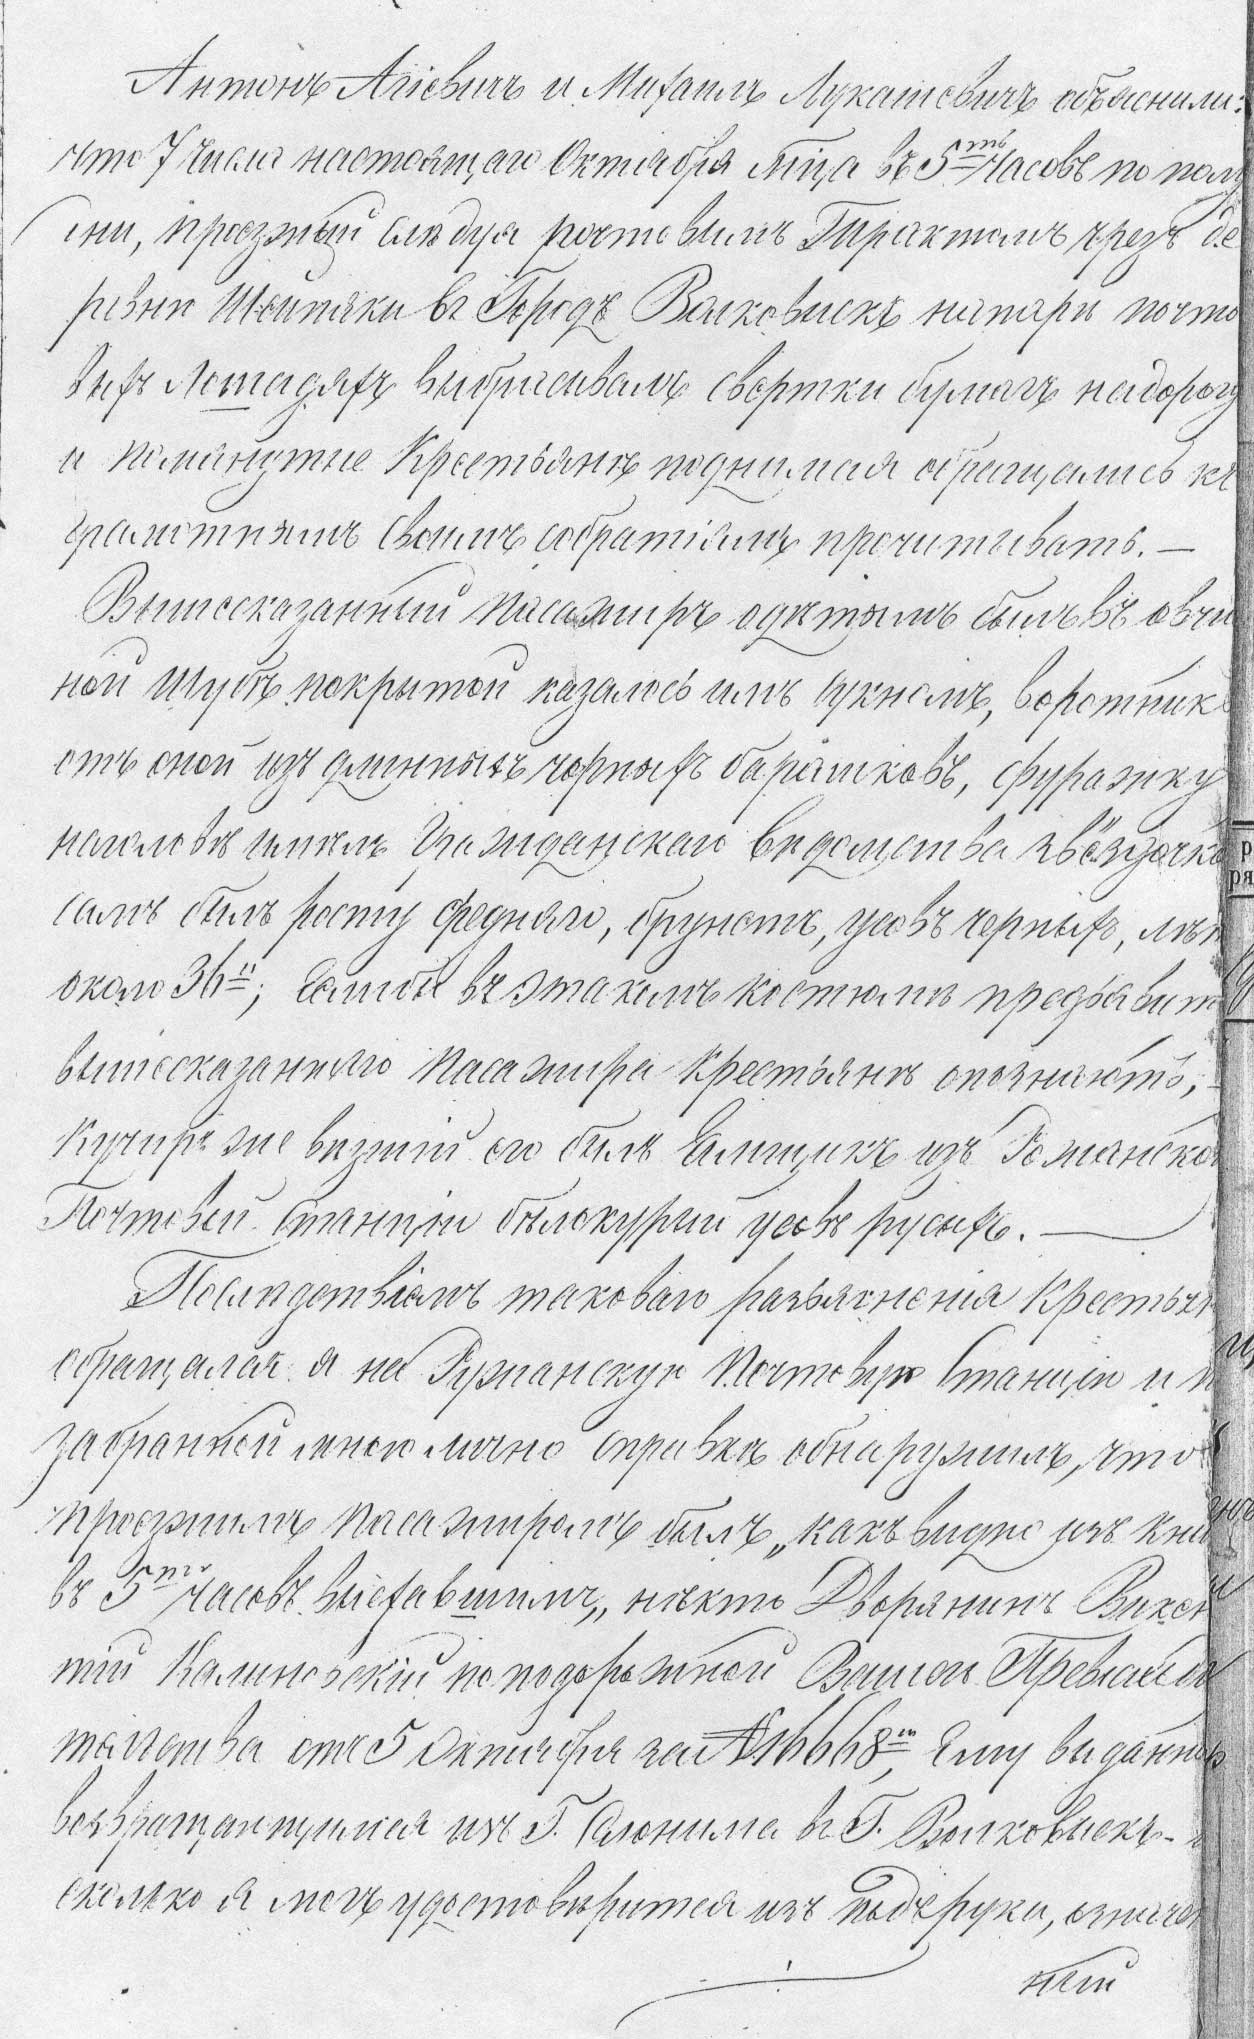 Антонъ Агіевичъ и Михаилъ Лукашевичъ объяснили:
что 7 числа настоящаго Октября м-ца въ 5ть часовъ по полу
дни, проезжый следуя почтовымъ Трактомъ чрезъ де
ревню Шейпяки въ Городъ Волковискъ на паре почто
выхъ Лошадяхъ выбрасывалъ свертки бумагъ на дорогу
и помянутые Крестьяне поднимая обращались къ
грамотнымъ своимъ собратіямъ прочитывать. —
Вышесказанный пасажиръ одетымъ былъ въ овчи
ной шубе покрытой казалось имъ сукномъ, воротникъ
отъ оной изъ длинныхъ чорныхъ барашковъ, фуражку
на голове имелъ Гражданскаго ведомства звёздочко
самъ былъ росту средняго, брунетъ, усовъ черныхъ, летъ
около 36и; Еслибы въ этакомъ костюме предъявит
вышесказаннаго пасажира Крестьяне опознаютъ;
Кучиръ же везший его былъ Ямщикъ изъ Рожанской
Почтовой Станціи белокурый усовъ русыхъ. —
Последствіемъ таковаго разъясненія Крестьян
обращался я на Ружанскую Почтовую Станцію и п
забранной мною лично справке обнаружилъ, что
проезжимъ пасажиромъ былъ „какъ видно изъ кни
въ 5ть часовъ выехавшимъ„ некто Дворянинъ Викен
тій Калиновскій по подорожной Вашего Превасхо
тельства отъ 5 Октября за № 16668м, Ему выданной
возвращающимся изъ Г. Слонима въ Г. Волковискъ -
сколько я могъ удостоверится изъ подъ руки, означен
ный